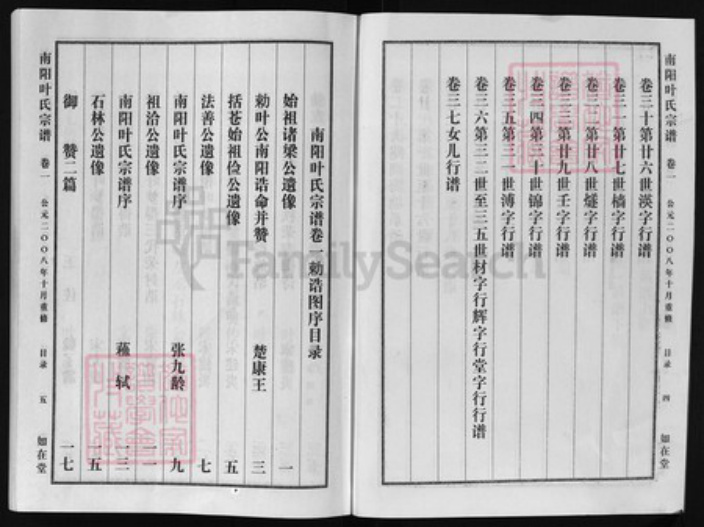 南阳叶氏宗谱 卷一 公元二00八年十月重修 目录 四 如在堂
卷三十第廿六世渶字行谱
卷三一第廿七世樯字行谱
卷三二第廿八世燧字行谱
卷三三第廿九世壬字行谱
卷三四第三十世锦字行谱
卷三五第三一世溥字行谱
卷三六第三二世至三五世材字行辉字行堂字行行谱
卷三七女儿行谱
南阳叶氏宗谱卷一勅诰图序目录
始祖诸梁公遗像 一
勅叶公南阳诰命并赞 楚康王 三
括苍始祖俭公遗像 五
法善公遗像 七
南阳叶氏宗谱序 张九龄 九
祖洽公遗像 一一
南阳叶氏宗谱序 苏轼 一三
石林公遗像 一五
御赞二篇 一七
南阳叶氏宗谱 卷一 公元二00八年十月重修 目录 五 如在堂
FamilySearch